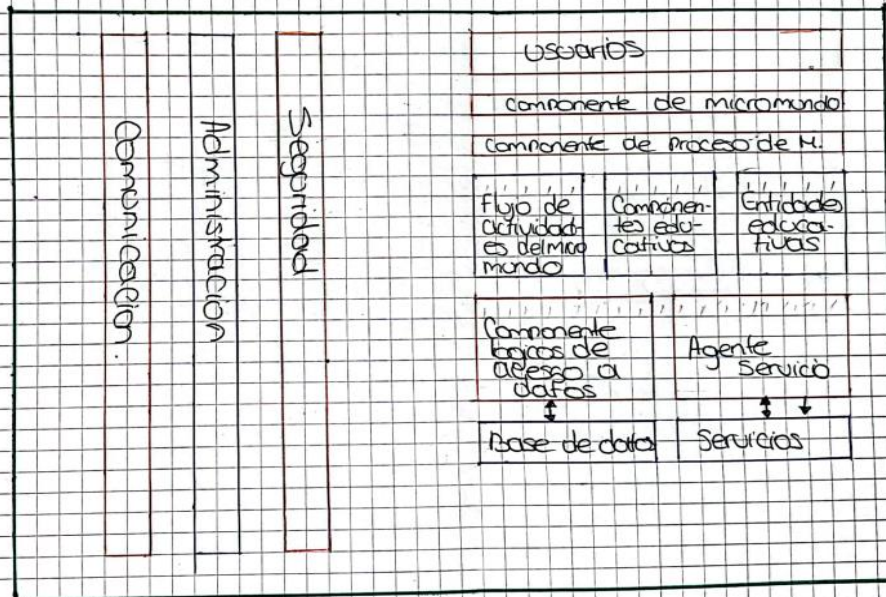 Comunicación.
Administración
Seguridad
Usuarios
Componente de micromundo
Componente de Proceso de M.
Flujo de
actividad-
es del micro
mundo
Componen-
tes edu-
cativos
Entidades
educa-
tivas
Componente
logicos de
acceso a
datos
Agente
Servicio
Base de datos
Servicios